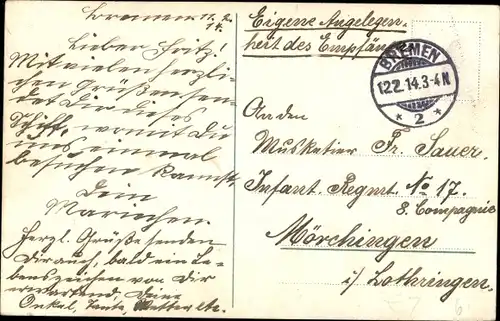 Bremen 11. 2.
14.
Lieber Fritz!
Mit vielen herzli-
chen Grüßen sen-
det Dir dieses
Schiff, womit Du
uns einmal
besuchen kannst,
Dein
Mariechen.
Herzl. Grüße senden
Dir auch, bald ein Le-
benszeichen von Dir
erwartend, Deine
Onkel, Tante, Vetter etc.
Eigene Angelegen-
heit des Empfän
BREMEN
12.2.14.3-4N
* 2 *
An den
Musketier Fr. Sauer.
Infant. Regmt. No 17.
8. Compagnie
Mörchingen
i/ Lothringen.